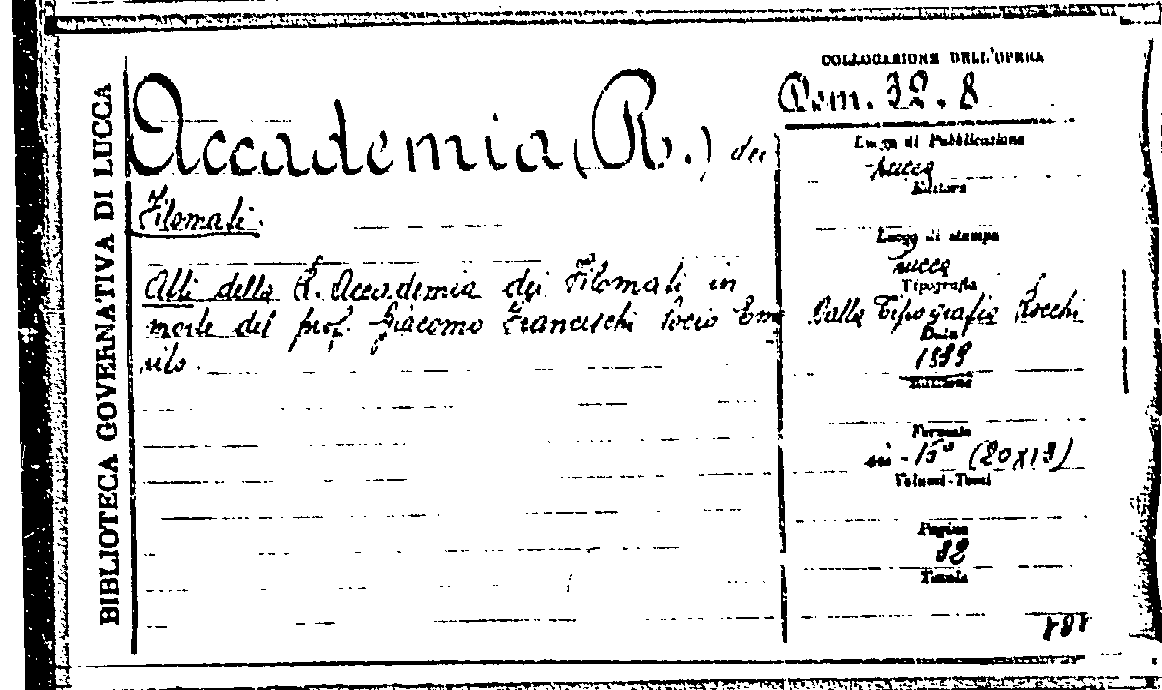 BIBLIOTECA GOVERNATIVA DI LUCCA
Accademia (R.) dei
Filomati.
Atti della R. Accademia dei Filomati in
morte del prof. Giacomo Franceschi Socio Eme
rito.
COLLOCAZIONE DELL'OPERA
32.8
Luogo di Pubblicazione
Lucca
Editore
Luogo di stampa
Lucca
Tipografia
Dalla Tipografia Rocchi
Data
Edizione
Formato
in-16° (20x13)
Volumi-Tomi
Pagine
32
Tavole